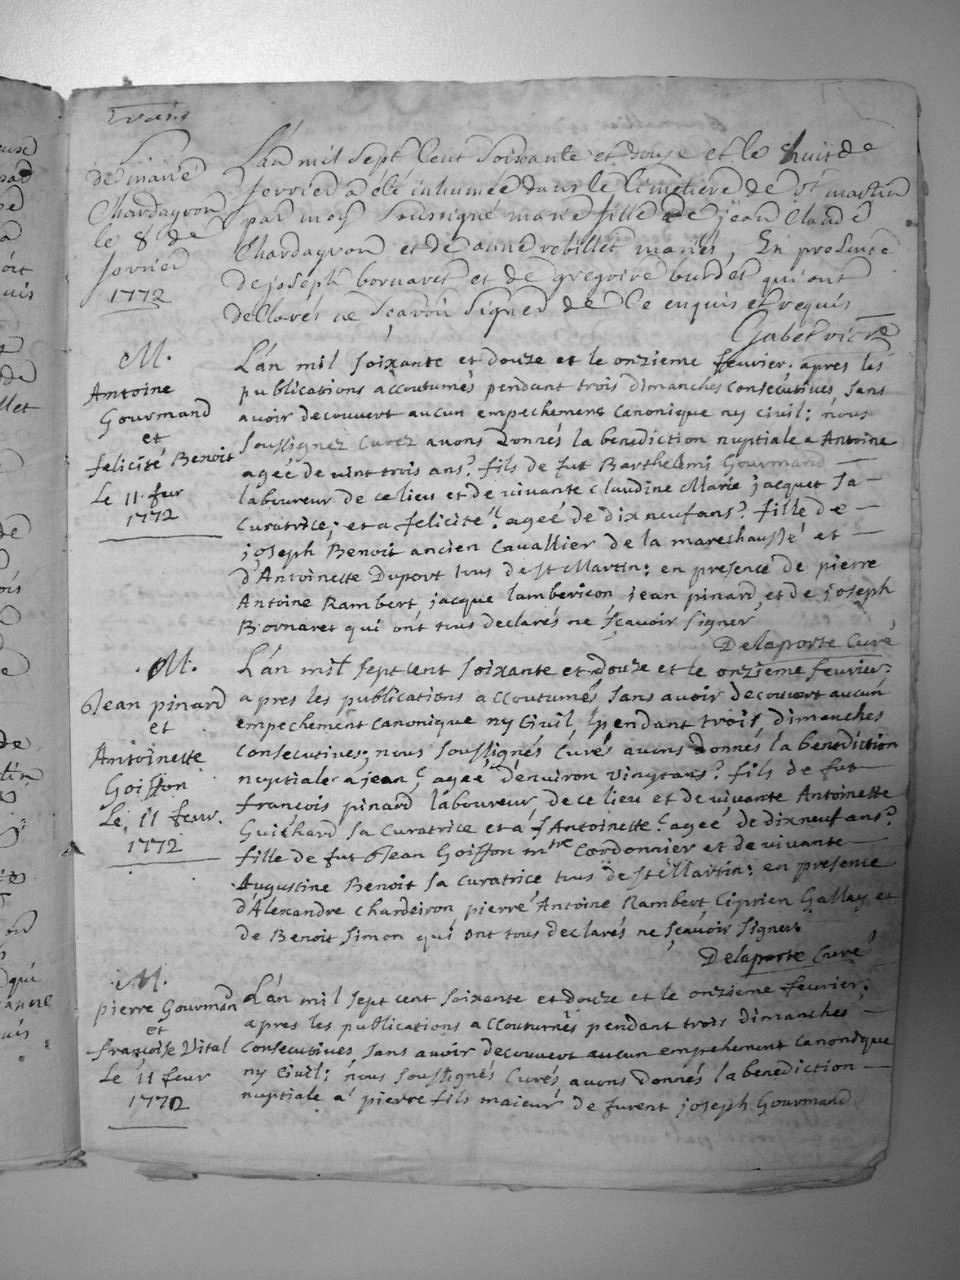 Trois
S
de marie
Chardayron
le 8 de
fevrier
1772
L'an mil sept Cent soixante et douze et le huit de
fevrier a été inhumée dans le Cimetière de St martin
par moy soussigné marie fille de jean Claude
Chardayron et de anne rebillet mariés, En presence
de joseph bornaret et de gregoire burdet qui ont
declarés ne sçavoir signer de Ce enquis et requis
Gabet vicre
M.
Antoine
Gourmand
et
felicité Benoit
Le 11 fevr
1772
L'an mil soixante et douze et le onzieme fevrier. apres les
publications accoutumés pendant trois dimanches consecutives sans
avoir decouvert aucun empechement canonique ny civil; nous
soussignez Curez avons donnés la benediction nuptiale a Antoine
ageé de vint trois ans? fils de fut Barthelemi Gourmand
laboureur de ce lieu et de vivante claudine Marie jacquet sa
curatrice; et a felicité ageé de dix neuf ans? fille de
joseph Benoit ancien Cavallier de la mareshaussé et
d'Antoinette Duport tous de st Martin; en presence de pierre
Antoine Rambert, jacque lambericon jean pinard et de joseph
Bornaret qui ont tous declarés ne sçavoir signer
Delaporte Curé
M.
Jean pinard
et
Antoinette
Goiffon
Le 11 fevr.
1772
L'an mil sept cent soixante et douze et le onzieme fevrier:
apres les publications accoutumés sans avoir decouvert aucun
empechement canonique ny Civil pendant trois dimanches
consecutives; nous soussignés Curés avons donnés la benediction
nuptiale a jean ageé d'environ vingt ans? fils de fut
françois pinard laboureur de ce lieu et de vivante Antoinette
Guichard sa curatrice et a Antoinette ageé de dix neuf ans?
fille de fut Jean Goiffon mtre Cordonnier et de vivante
Augustine Benoit sa curatrice tous de st Martin; en presence
d'Alexandre chardeiron pierre Antoine Rambert Ciprien Gallay et
de Benoit Simon qui ont tous declarés ne sçavoir signer.
Delaporte Curé
M.
pierre Gourmand
et
françoise Vital
Le 11 fevr
1772
L'an mil sept cent soixante et douze et le onzieme fevrier;
apres les publications accoutumés pendant trois dimanches
consecutives sans avoir decouvert aucun empechement canonique
ny Civil; nous soussignés Curés avons donnés la benediction
nuptiale a pierre fils maieur de furent joseph Gourmand